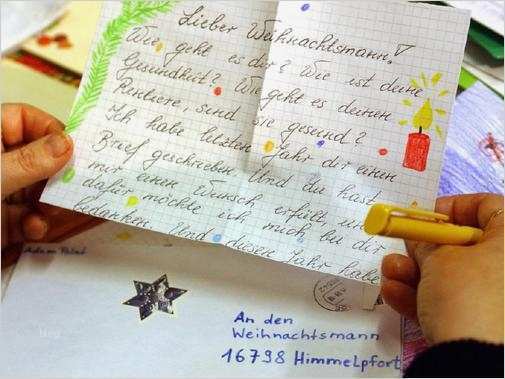 Lieber Weihnachtsmann!
Wie geht es dir? Wie ist deine
Gesundheit? Wie geht es deinen
Rentiere, sind sie gesund?
Ich habe letzten Jahr dir einen
Brief geschrieben. Und du hast
mir einen Wunsch erfüllt und
dafür möchte ich mich bei dir
bedanken. Und diesen Jahr habe
An den
Weihnachtsmann
16798 Himmelpfort